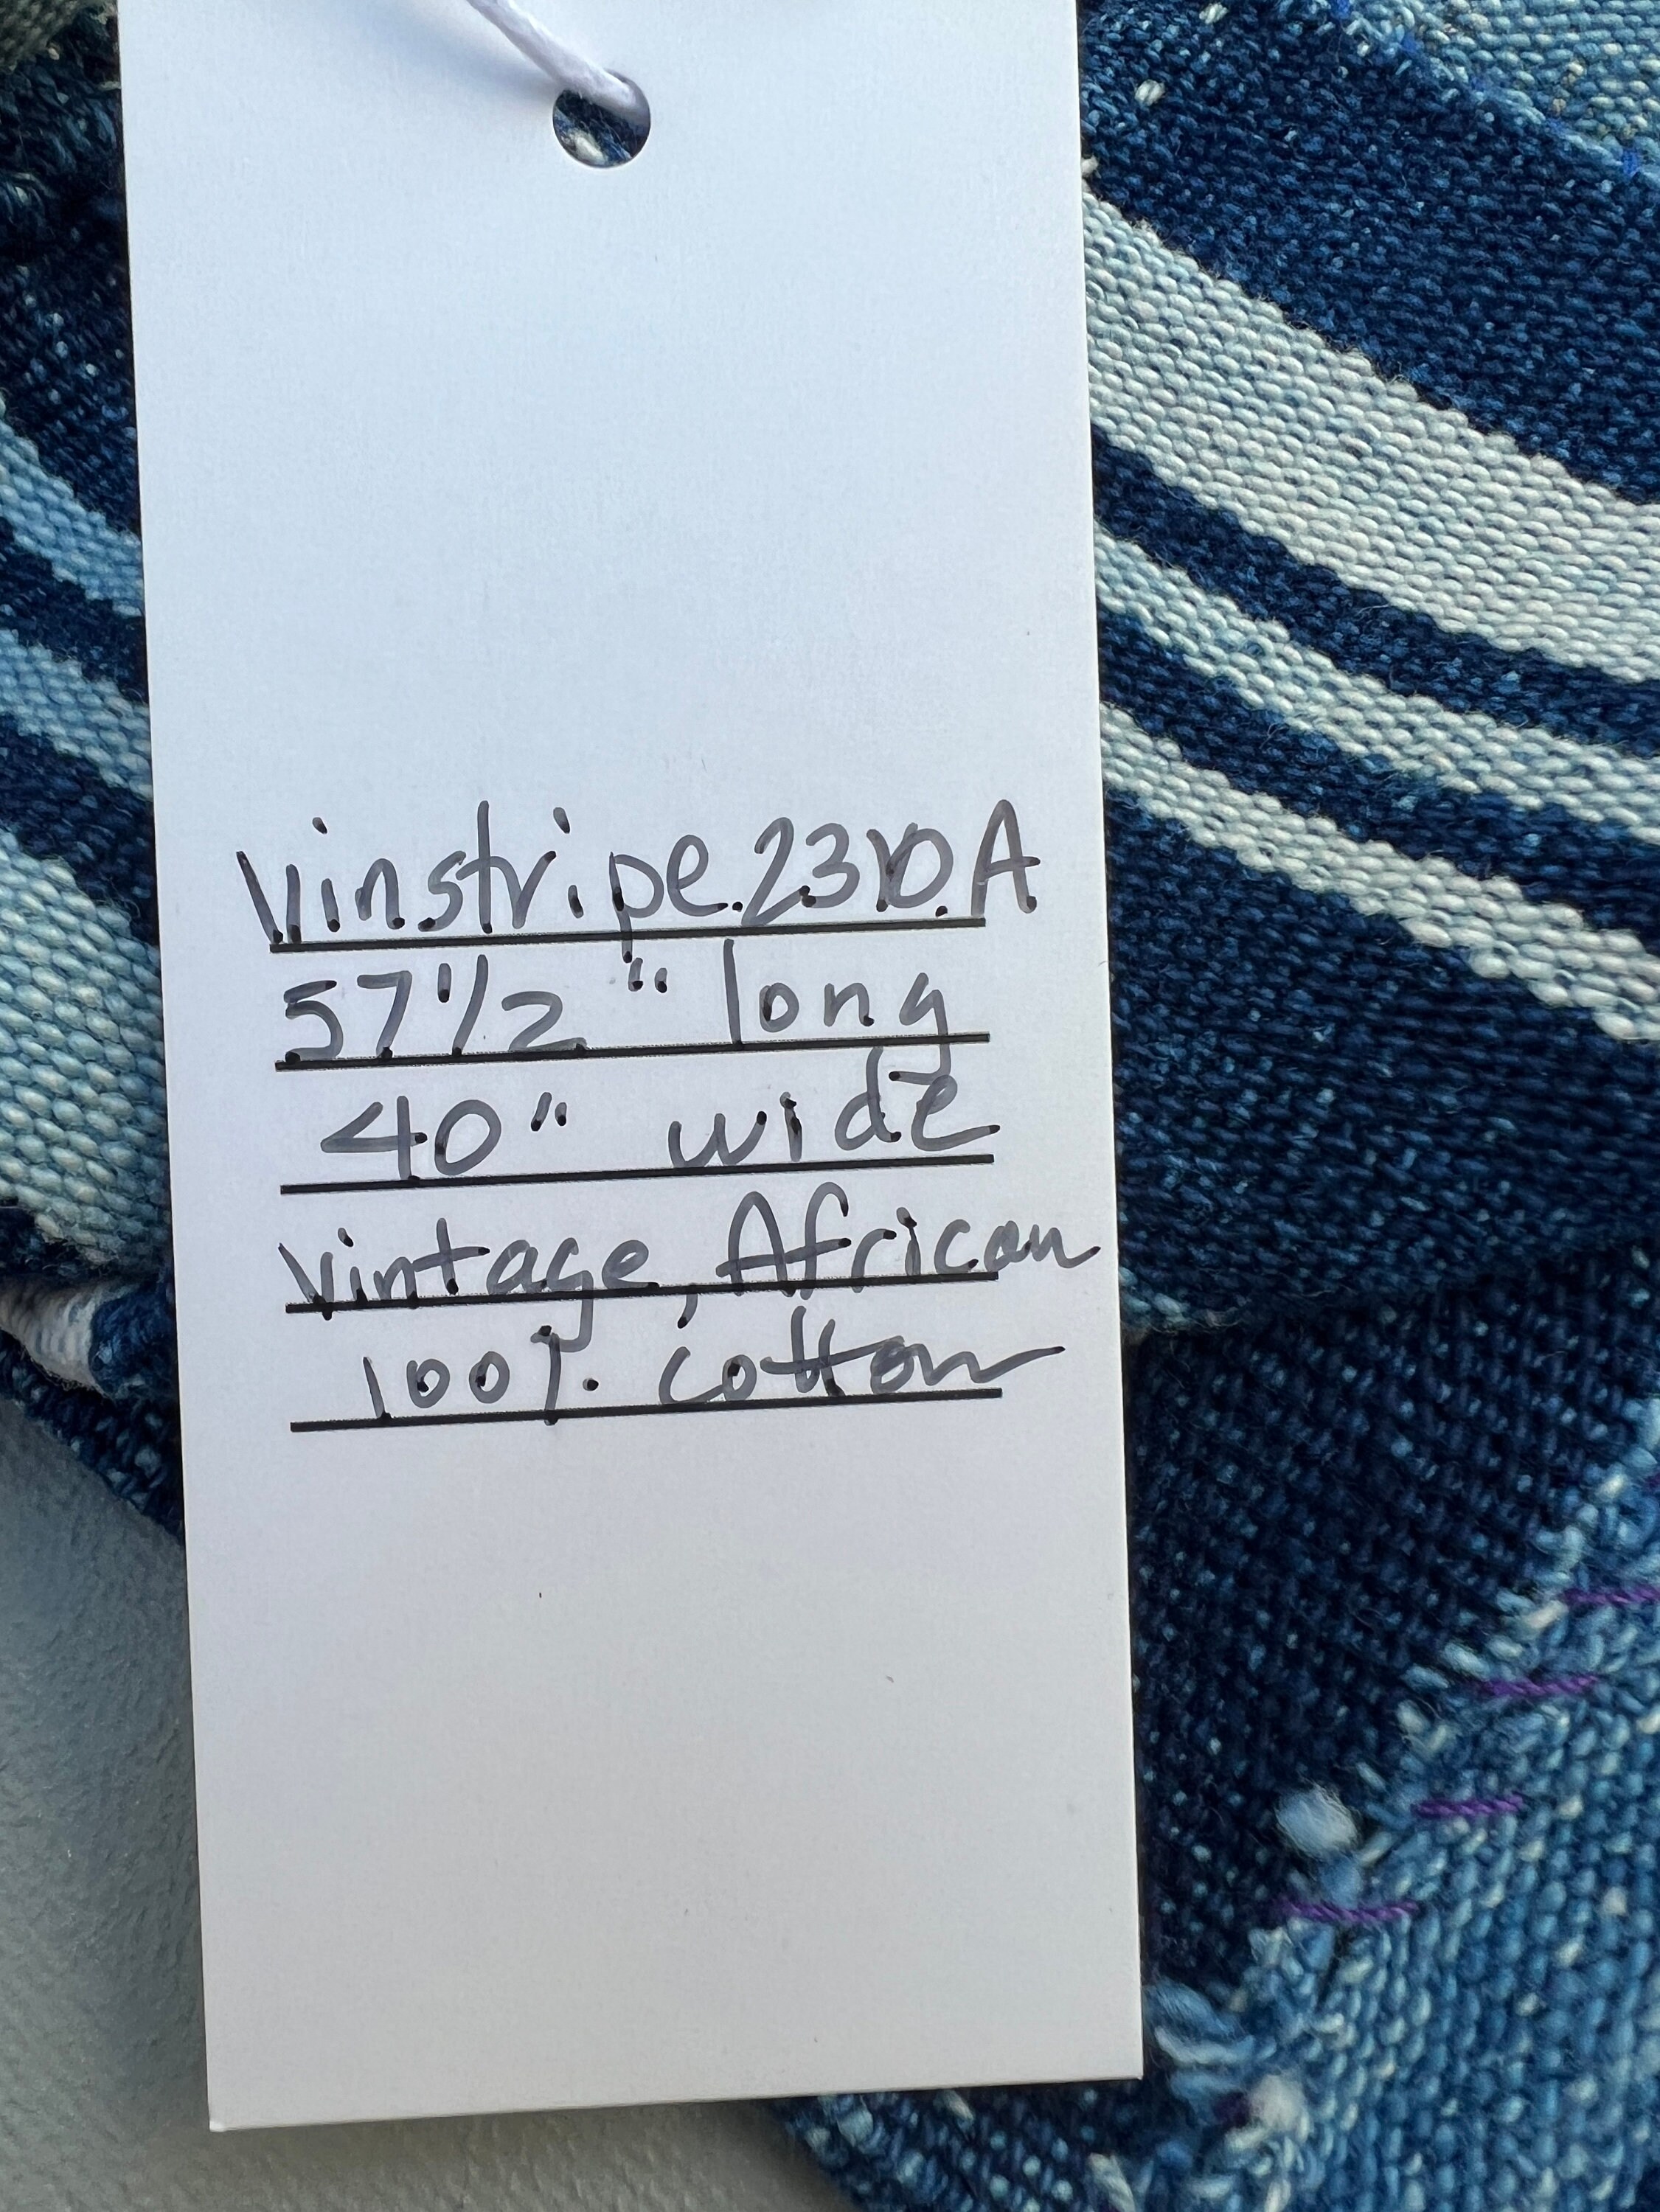 Vinstripe.2310.A
57 1/2 " long
40" wide
Vintage, African
100% cotton